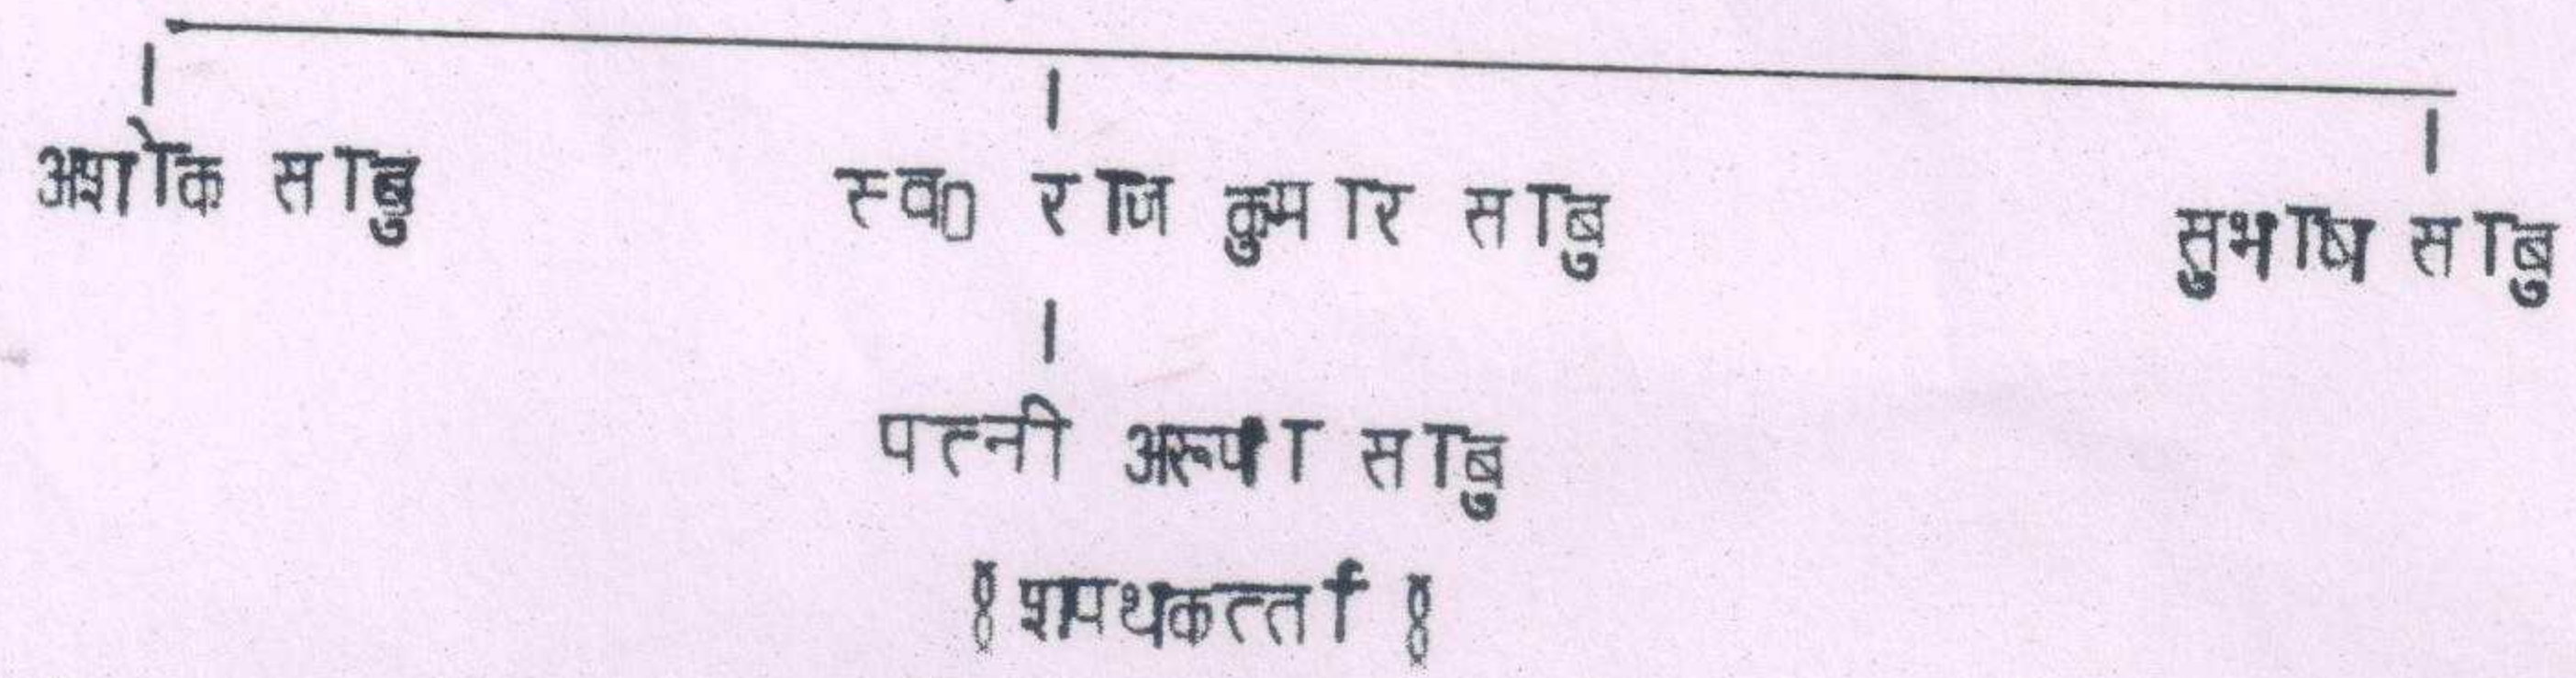 अशोक साबु स्व0 राज कुमार साबु सुभाष साबु
पत्नी अरूपा साबु
शपथकर्त्ता